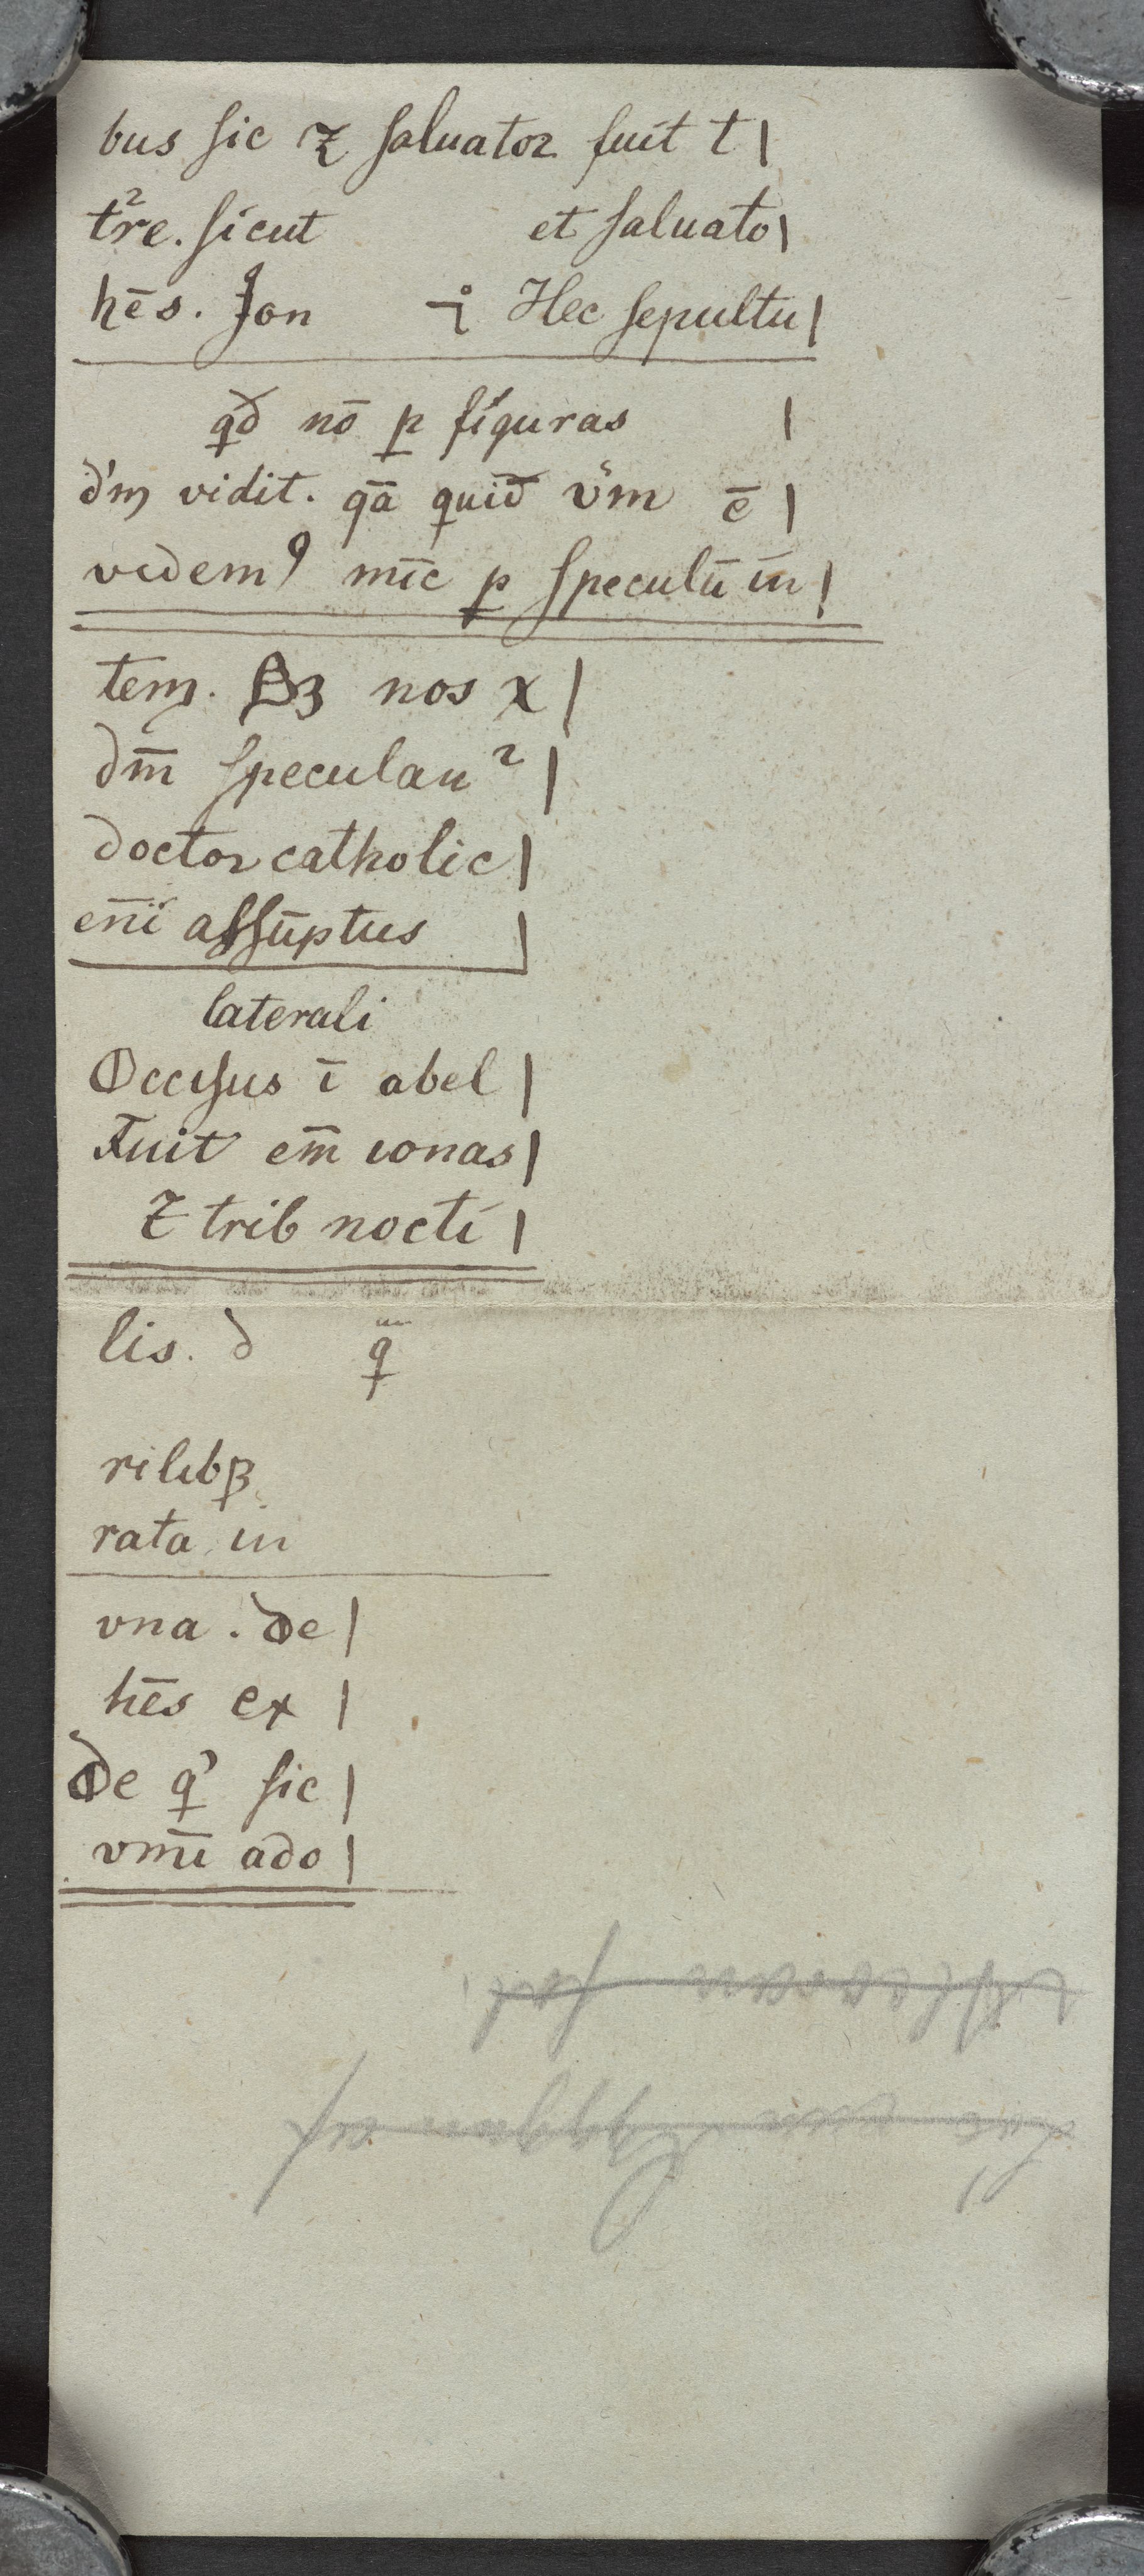 bus sic ⁊ saluatoꝛ fuit t|
tr̄e. sicut et saluato|
hēs. Jon Hec sepultu|
qd̄ nō ꝑ figuras |
d'm vidit. qā quid̄ v̊m ē|
videmꝰ nūc ꝑ speculū in|
tem. Sꝫ nos x|
dm̄ speculan²|
doctoꝛ catholic|
eni assūptus
laterali
Occisus ī abel|
Fuit em̄ ionas|
⁊ trib nocti|
lis. d q̄
rilibꝫ
rata in
vna . de|
hēs ex |
De q' sic|
vnū ado|